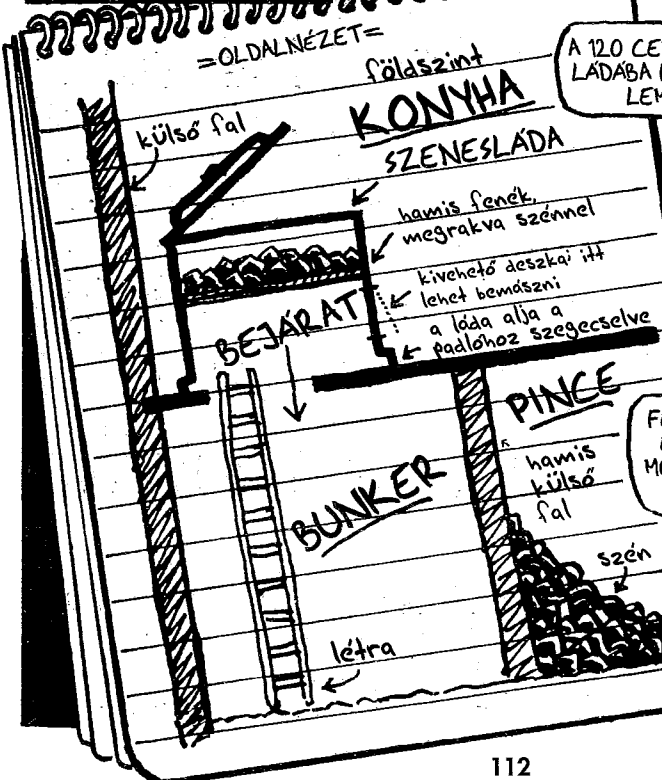 =OLDALNÉZET=
földszint
KONYHA
külső fal
SZENESLÁDA
hamis fenék,
megrakva szénnel
kivehető deszka: itt
lehet bemászni
a láda alja a
padlóhoz szegecselve
BEJÁRAT
PINCE
hamis
külső
fal
BUNKER
szén
létra
A 120
LÁDÁBA
112